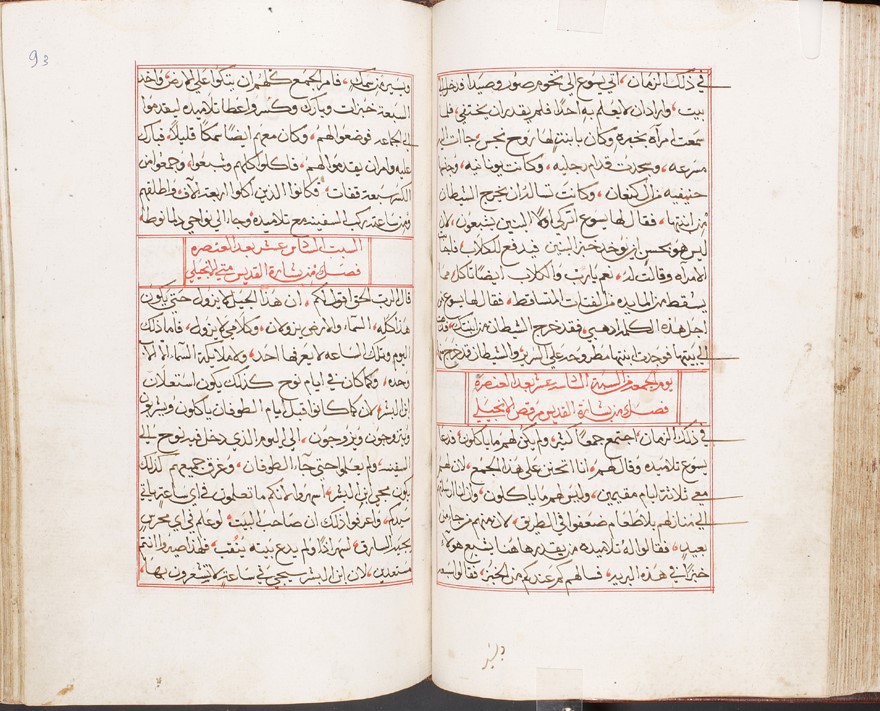 في ذلك الزمان، اتي يسوع الي تخوم صور وصيدا فدخل الي
بيت، واراد ان لا يعلم به احد، فلم يقدر ان يختفي، فلما
سمعت امراه بخبره وكان بابنتها روح نجس، جات اليه
مسرعه، وسجدت قدام رجليه، وكانت يونانيه، وجنسها
من كنعان، وكانت تساله ان يخرج الشيطان
من ابنتها، فقال لها يسوع اتركي اولا البنين يشبعون، لان
ليس هو بحسن ان يوخد خبز البنين فيدفع للكلاب، فاجابت
الامراه وقالت له، نعم يارب، والكلاب ايضا تاكل مما
يسقط من المايده من الفتات المتساقط، فقال لها يسوع من
اجل هذه الكلمه اذهبي، فقد خرج الشيطان من ابنتك،
الي بيتها فوجدت ابنتها مطروحه علي السرير، والشيطان قد خرج منها
يوم الجمعه من السبة السادسه عشر بعد العنصره
فصل من بشارة القديس مرقص الانجيلي
في ذلك الزمان، اجتمع جموعا كثيره، ولم يكن لهم ما ياكلون، فدعا
يسوع تلاميذه وقال لهم، انا اتحنن علي هذا الجمع، لان لهم
معي ثلاثة ايام مقيمين، وليس لهم ما ياكلون، وان انا ارسلتهم
الي منازلهم بلا طعام ضعفوا في الطريق، لان منهم من جا من
بعيد، فقالوا له تلاميذه من يقدر هاهنا يشبع هولاء
خبزا في هذه البريه، فسالهم كم عندكم من الخبز، فقالوا سبعه
93
ويسير من سمك، فامر الجمع كلهم ان يتكوا علي الارض، واخد
السبعة خبزات وبارك وكسر واعطا تلاميذه ليقدموا
الي الجماعه فوضعوا لهم، وكان معهم ايضا سمكا قليلا، فبارك
عليه وامر ان يقدموا لهم، فاكلوا كلهم وشبعوا، وجمعوا من
الكسر سبعة قفات، فكانوا الذين اكلوا اربعة الاف، واطلقهم
ومن ساعته ركب السفينه مع تلاميذه، وجا الي نواحي دلمانوطا،
السبت السادس عشر بعد العنصره
فصل من بشارة القديس متي الانجيلي
قال الرب الحق اقول لكم، ان هذا الجيل لا يزول حتي يكون
هذا كله، السماء والارض يزولان، وكلامي لا يزول، فاما ذلك
اليوم وتلك الساعه لا يعرفها احد، ولا ملائكة السماء، الا الاب
وحده، وكما كان في ايام نوح كذلك يكون استعلان
ابن البشر، لان كما كانوا قبل ايام الطوفان ياكلون ويشربون
ويتزوجون ويزوجون، الي اليوم الذي دخل فيه نوح الي
السفينه، ولم يعلموا حتي جاء الطوفان، وغرق جميعهم كذلك
يكون مجي ابن البشر، اسهروا لانكم ما تعلمون في اي ساعة ياتي
سيدكم، واعرفوا ذلك ان صاحب البيت، لو علم في اي محرس
يجي السارق، لسهر اذا ولم يدع بيته ينقب، فلهذا صيروا انتم
مستعدين، لان ابن البشر سيجي في ساعة لا تشعرون بها،